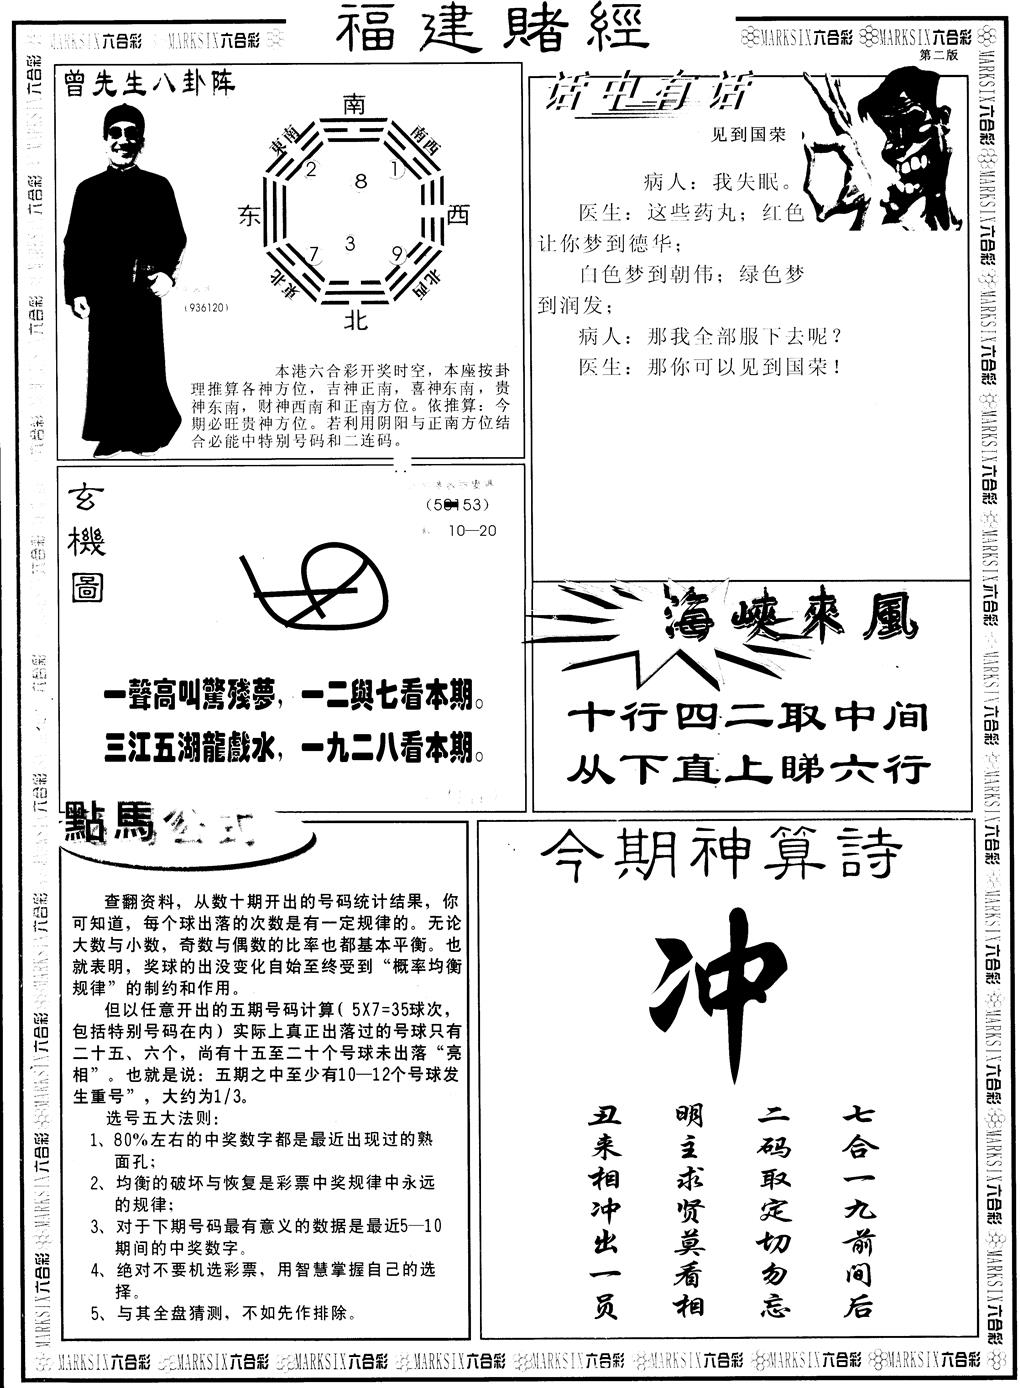 福建賭經
MARKSIX六合彩 MARKSIX六合彩
MARKSIX六合彩 MARKSIX六合彩
第二版
曾先生八卦阵
南
東南
南西
2
1
8
东
西
3
7
9
東北
北西
北
(936120)
本港六合彩开奖时空，本座按卦
理推算各神方位，吉神正南，喜神东南，贵
神东南，财神西南和正南方位。依推算：今
期必旺贵神方位。若利用阴阳与正南方位结
合必能中特别号码和二连码。
话中有话
见到国荣
病人：我失眠。
医生：这些药丸；红色
让你梦到德华；
白色梦到朝伟；绿色梦
到润发；
病人：那我全部服下去呢？
医生：那你可以见到国荣！
玄機圖
10—20
一聲高叫驚殘夢，一二與七看本期。
三江五湖龍戲水，一九二八看本期。
海峽來風
十行四二取中间
从下直上睇六行
點馬公式
查翻资料，从数十期开出的号码统计结果，你
可知道，每个球出落的次数是有一定规律的。无论
大数与小数，奇数与偶数的比率也都基本平衡。也
就表明，奖球的出没变化自始至终受到“概率均衡
规律”的制约和作用。
但以任意开出的五期号码计算( 5X7=35球次，
包括特别号码在内) 实际上真正出落过的号球只有
二十五、六个，尚有十五至二十个号球未出落“亮
相”。也就是说：五期之中至少有10—12个号球发
生重号”，大约为1/3。
选号五大法则：
1、80%左右的中奖数字都是最近出现过的熟
面孔；
2、均衡的破坏与恢复是彩票中奖规律中永远
的规律；
3、对于下期号码最有意义的数据是最近5—10
期间的中奖数字。
4、绝对不要机选彩票，用智慧掌握自己的选
择。
5、与其全盘猜测，不如先作排除。
今期神算詩
冲
七合一九前间后
二码取定切勿忘
明主求贤莫看相
丑来相冲出一员
MARKSIX六合彩 MARKSIX六合彩 MARKSIX六合彩 MARKSIX六合彩 MARKSIX六合彩 MARKSIX六合彩 MARKSIX六合彩 MARKSIX六合彩